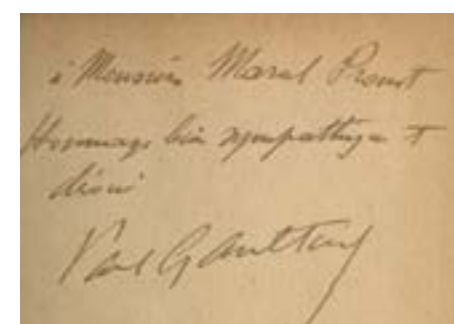 à Monsieur Marcel Proust
Hommage bien sympathique et
dévoué
Paul Gaultier